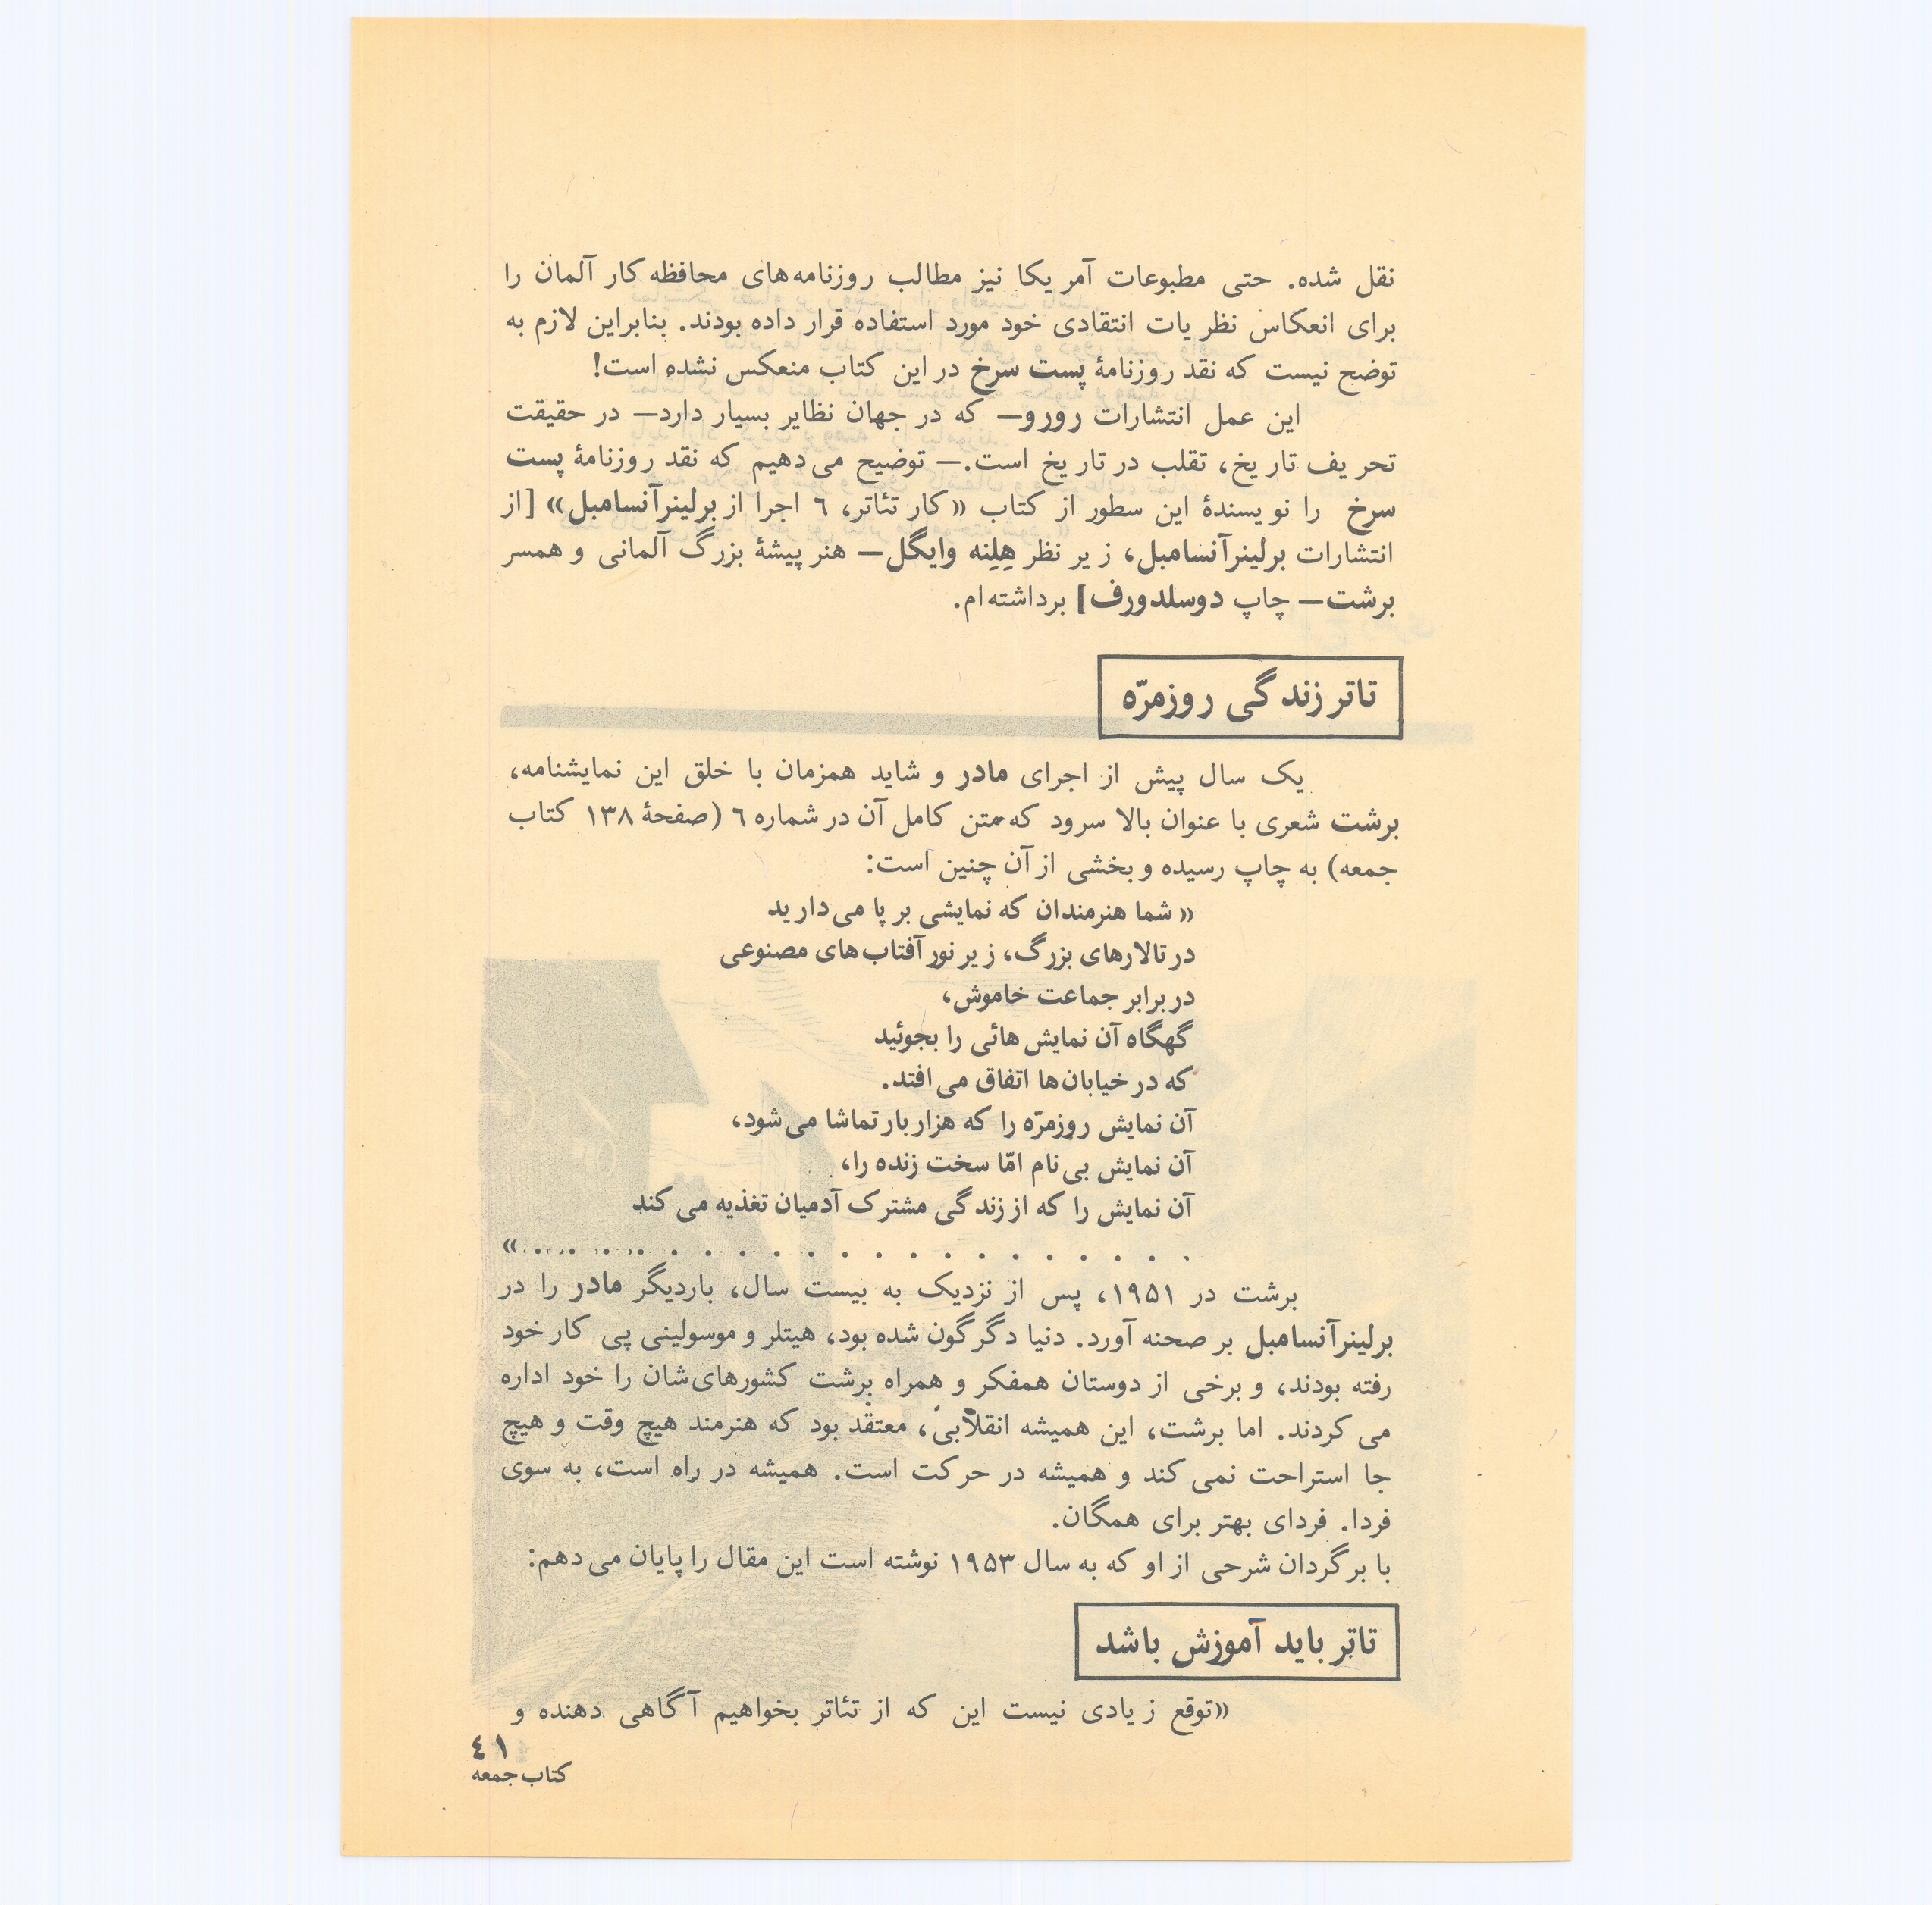 نقل شده. حتی مطبوعات آمریکا نیز مطالب روزنامه‌های محافظه کار آلمان را
برای انعکاس نظریات انتقادی خود مورد استفاده قرار داده بودند. بنابراین لازم به
توضح نیست که نقد روزنامهٔ پست سرخ در این کتاب منعکس نشده است!
این عمل انتشارات رورو— که در جهان نظایر بسیار دارد— در حقیقت
تحریف تاریخ، تقلب در تاریخ است.— توضیح می‌دهیم که نقد روزنامهٔ پست
سرخ را نویسندهٔ این سطور از کتاب «کار تئاتر، ٦ اجرا از برلینرآنسامبل» [از
انتشارات برلینرآنسامبل، زیر نظر هِلِنه وایگل— هنرپیشهٔ بزرگ آلمانی و همسر
برشت— چاپ دوسلدورف] برداشته‌ام.
تاتر زندگی روزمرّه
یک سال پیش از اجرای مادر و شاید همزمان با خلق این نمایشنامه،
برشت شعری با عنوان بالا سرود که متن کامل آن در شماره ٦ (صفحهٔ ۱۳۸ کتاب
جمعه) به چاپ رسیده و بخشی از آن چنین است:
«شما هنرمندان که نمایشی بر پا می‌دارید
در تالارهای بزرگ، زیر نور آفتاب‌های مصنوعی
در برابر جماعت خاموش،
گهگاه آن نمایش هائی را بجوئید
که در خیابان‌ها اتفاق می‌افتد.
آن نمایش روزمرّه را که هزار بار تماشا می‌شود،
آن نمایش بی‌نام امّا سخت زنده را،
آن نمایش را که از زندگی مشترک آدمیان تغذیه می‌کند
. . . . . . . . . . . . . . . . . . . . . . . .»
برشت در ۱۹۵۱، پس از نزدیک به بیست سال، باردیگر مادر را در
برلینرآنسامبل بر صحنه آورد. دنیا دگرگون شده بود، هیتلر و موسولینی پی کار خود
رفته بودند، و برخی از دوستان همفکر و همراه برشت کشورهای‌شان را خود اداره
می کردند. اما برشت، این همیشه انقلابی، معتقد بود که هنرمند هیچ وقت و هیچ
جا استراحت نمی کند و همیشه در حرکت است. همیشه در راه است، به سوی
فردا. فردای بهتر برای همگان.
با برگردان شرحی از او که به سال ۱۹۵۳ نوشته است این مقال را پایان می‌دهم:
تاتر باید آموزش باشد
«توقع زیادی نیست این که از تئاتر بخواهیم آگاهی دهنده و
٤١
کتاب جمعه